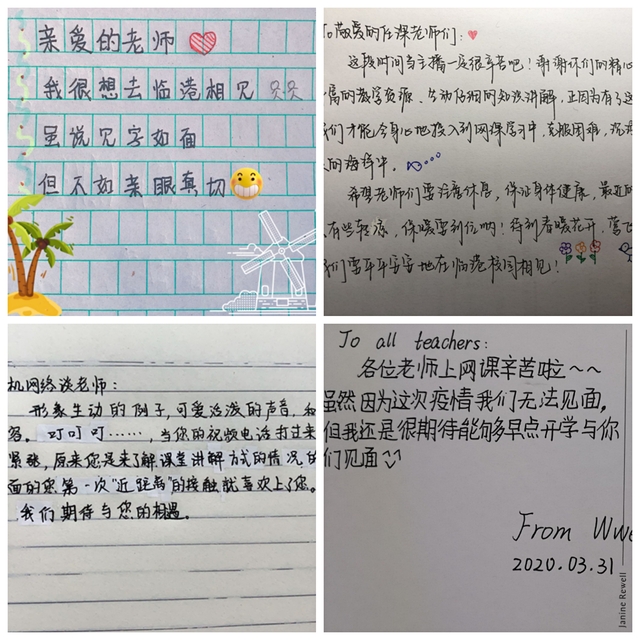 亲爱的老师
我很想去临港相见
虽说见字如面
但不如亲眼真切
To 敬爱的任课老师们：
这段时间当主播一定很辛苦吧！谢谢你们的精心
富的教学资源、生动仔细的知识讲解，正因为有了这
我们才能全身心地投入到网课学习中，克服困难，沉浸
的海洋中。
希望老师们要注意休息，保证身体健康，最近的
有些转凉，保暖要到位哟！待到春暖花开，莺飞
我们要平平安安地在临港校园相见！
机网络谈老师：
形象生动的例子，可爱活泼的声音，和
容。叮叮叮……，当您的视频电话打过来
紧张，原来您是来了解课堂讲解方式的情况的
面的您第一次“近距离”的接触就喜欢上了您。
我们期待与您的相遇。
To all teachers:
各位老师上网课辛苦啦～～
虽然因为这次疫情我们无法见面，
但我还是很期待能够早点开学与你
们见面
From Wwe
2020.03.31
Janine Rewell